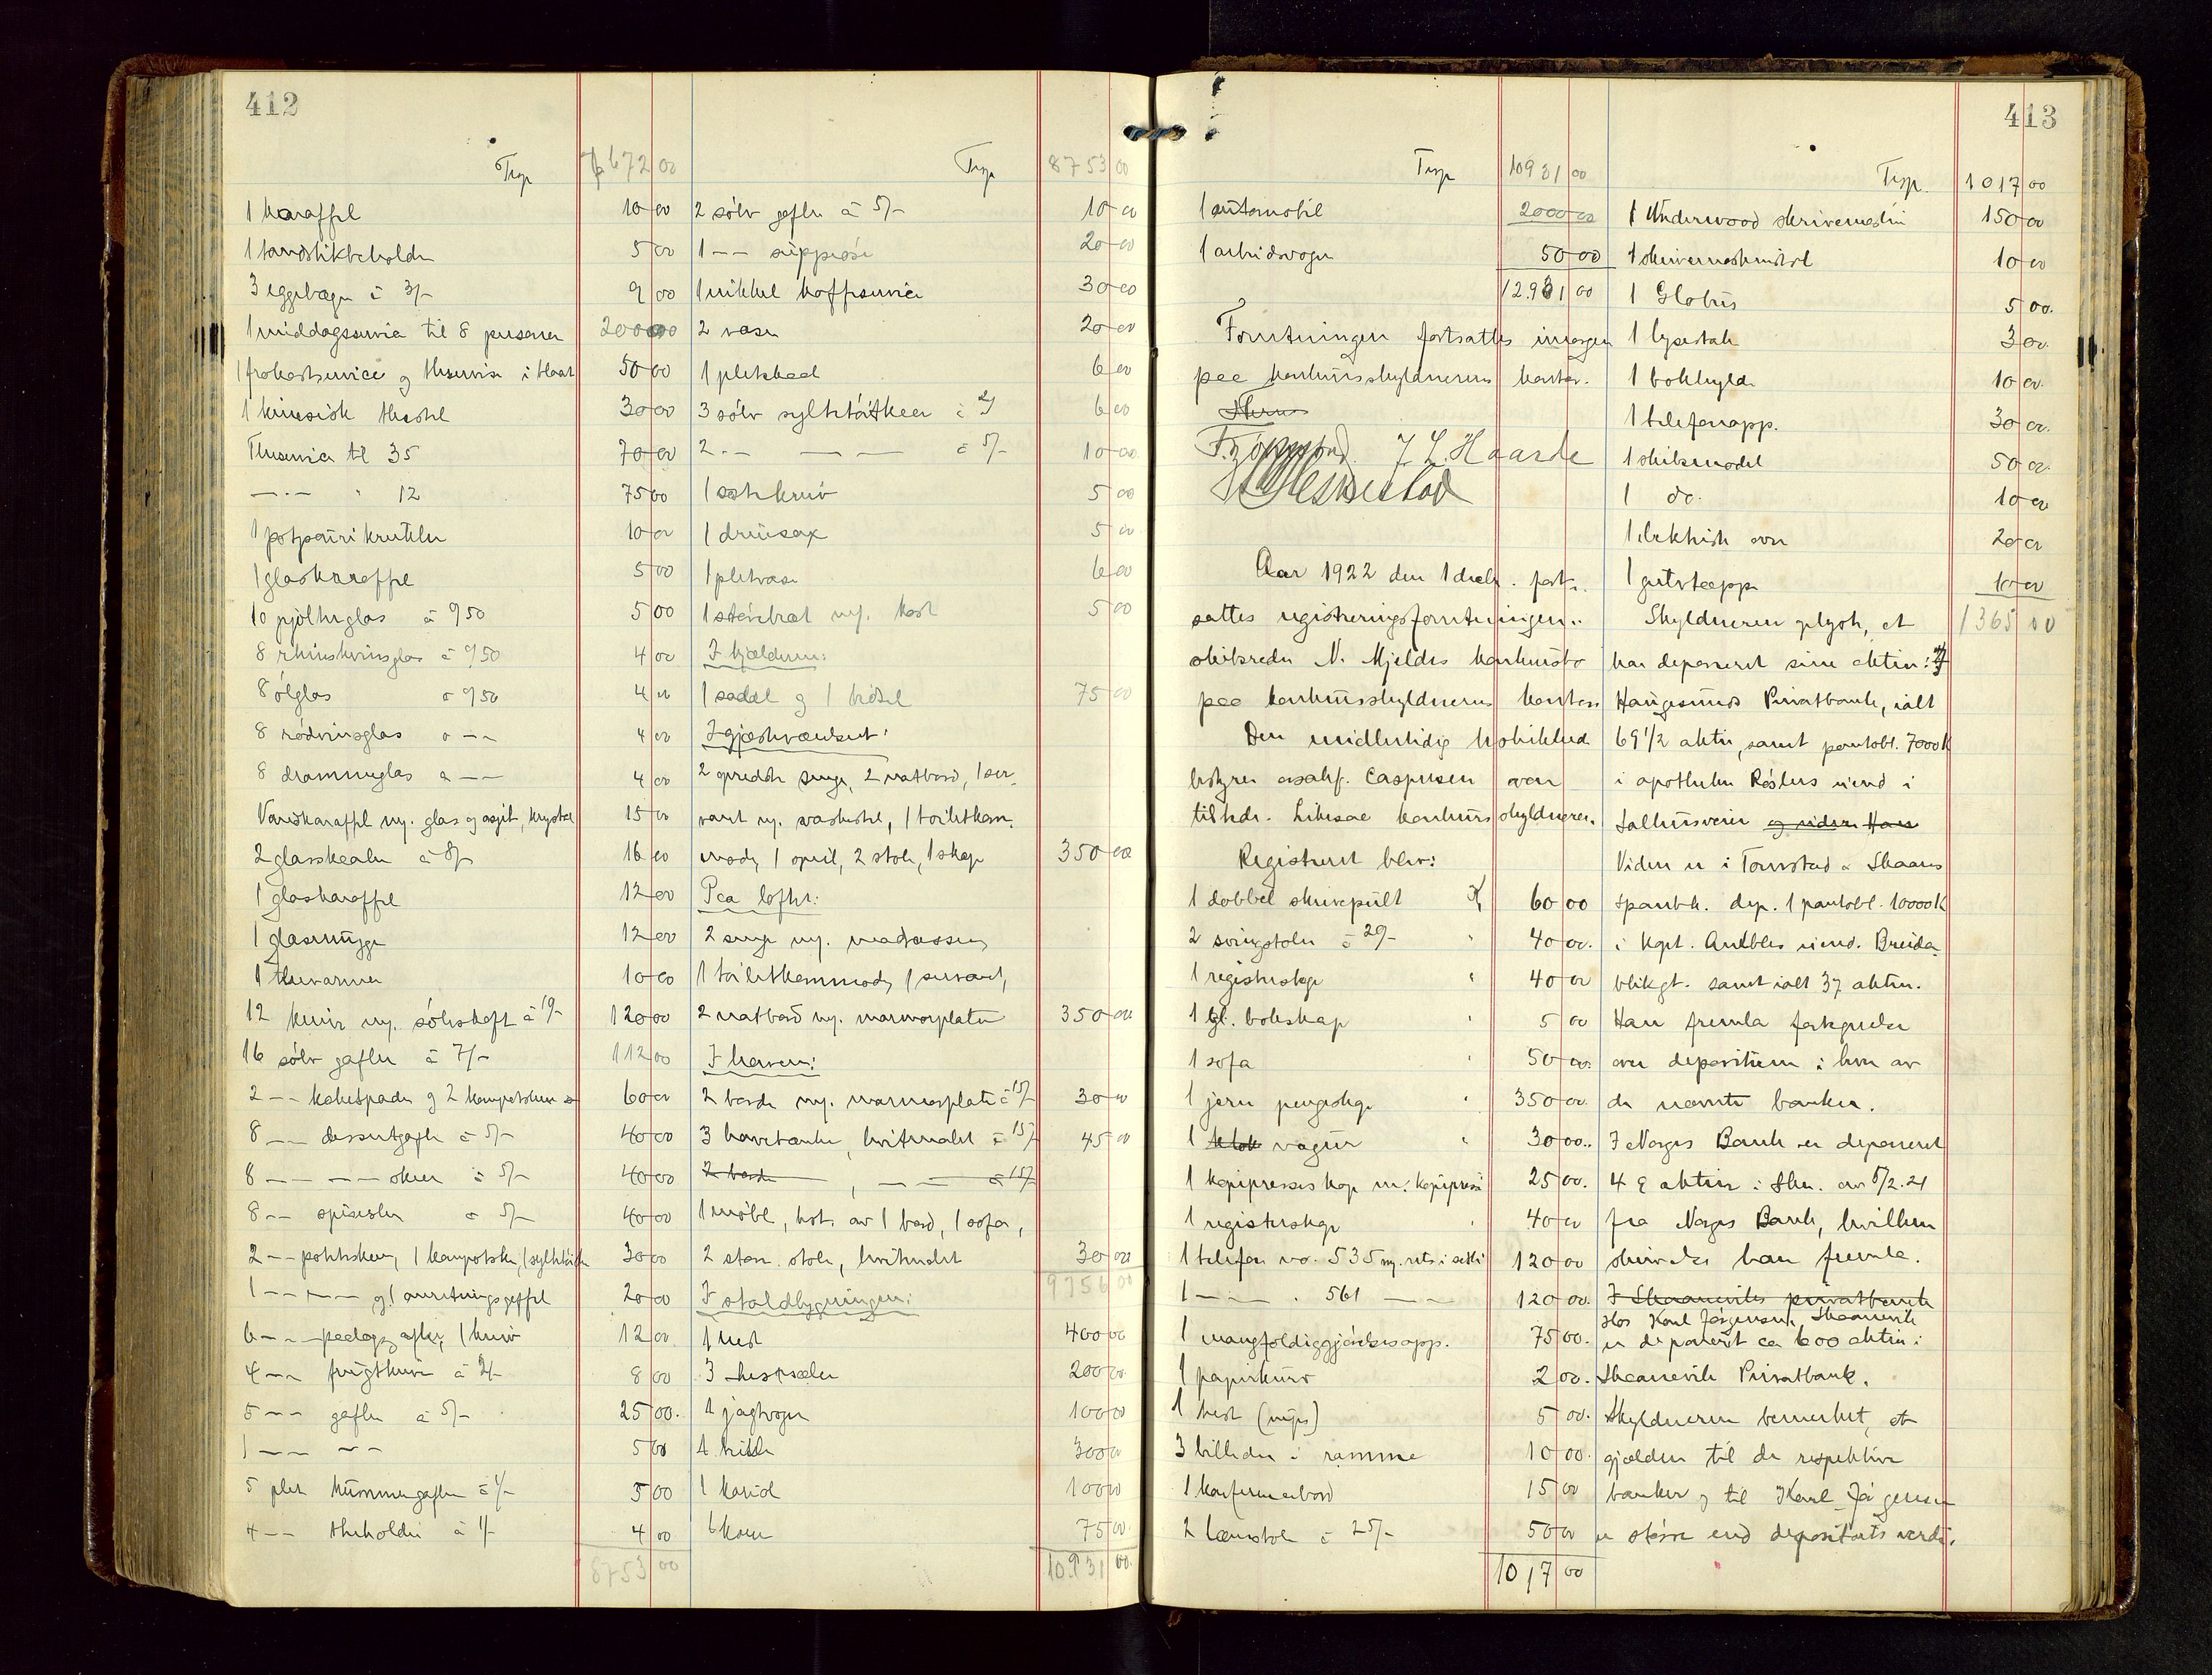 412
Trsp 7672 00
1 karaffel 10 00
1 tandstikbeholder 5 00
3 eggebæger á 3/- 9 00
1 middagsservice til 8 personer 200 00
1 frokostservice og theservise i blaat 50 00
1 kinesisk thestel 30 00
Theservice til 35 70 00
— · — " 12 75 00
1 potpouri krukke 10 00
1 glaskaraffel 5 00
10 pjolterglas á 9 50 5 00
8 rhinskvinsglas á 9 50 4 00
8 ølglas á 9 50 4 00
8 rødvinsglas á — 4 00
8 drammeglas á — 4 00
Vandkaraffel m. glas og asjet, krystal 15 00
2 glasskaaler á 8/- 16 00
1 glaskaraffel 12 00
1 glasmugge 12 00
1 thevarmer 10 00
12 kniver m. sølvskaft á 10/- 120 00
16 sølv gafler á 7/- 112 00
2 — kakespader og 2 kompotskeer 60 00
8 — dessertgafler á 5/- 40 00
8 — — skeer á 5/- 40 00
8 — spiseskeer á 5/- 40 00
2 — potetskeer, 1 kompotske, 1 syltetøiske 30 00
1 — — og 1 anretningsgaffel 20 00
6 — paalæggafler, 1 kniv 12 00
4 — frugtkniver á 2/- 8 00
5 — gafler á 5/- 25 00
1 — — 5 00
5 plet hummergafler á 1/- 5 00
4 — theholder á 1/- 4 00
8753 00
Trsp 8753 00
2 sølv gafler á 5/- 10 00
1 — suppeøse 20 00
1 nikkel kaffeservice 30 00
2 vaser 20 00
1 pletskaal 6 00
3 sølv syltetøiskeer á 2/- 6 00
2 — — — á 5/- 10 00
1 ostekniv 5 00
1 druesax 5 00
1 pletvase 6 00
1 støvebret m. kost 5 00
I kjelderen:
1 sadel og 1 bidsel 75 00
I gjesteværelset:
2 opredte senge, 2 natbord, 1 ser-
vant m. vaskestel, 1 toiletkom-
mode, 1 speil, 2 stole, 1 skap 350 00
Paa loftet:
2 senge m. madrasser,
1 toiletkommode, 1 servant,
2 natbord m. marmorplater 350 00
I haven:
2 borde m. marmorplate á 15/- 30 00
3 havebænke, hvitmalet á 15/- 45 00
2 borde, — — á 15/-
1 møbl., best. av 1 bord, 1 sofa,
2 stk. stole, hvitmalet 30 00
9756 00
I staldbygningen:
1 hest 400 00
3 hestesæler 200 00
1 jagtvogn 100 00
4 300 00
1 kariol 100 00
1 75 00
10.931 00
413
Trsp 10931 00
1 automobil 2000 00
1 arbeidsvogn 50 00
12.981 00
Forretningen fortsattes imorgen
paa konkursskyldnerens kontor.
J. L. Haarde
Aar 1922 den 1 decbr. fort-
sattes registreringsforretningen i
skibsreder N. Mjeldes konkursbo
paa konkursskyldnerens kontor
Den midlertidig beskikkede
bestyrer o.r.sakf. Caspersen var
tilstede. Likesaa konkursskyldneren.
Registrert blev:
1 dobbel skrivepult K 60 00
2 svingstoler á 20/- " 40 00
1 registerskap " 40 00
1 gl. bokskap " 5 00
1 sofa " 50 00
1 jern pengeskap " 350 00
1 klok vægur " 30 00
1 kopipresseskap m. kopipresse 25 00
1 registerskap " 40 00
1 telefon no. 535 m. rets i sætti 120 00
1 — — " 561 — — 120 00
1 mangfoldiggjørelsesapp. 75 00
1 papirkurv 2 00
1 hest (nips) 5 00
3 billeder i ramme 10 00
1 konferansebord 15 00
2 lænstole á 25/- 50 00
1017 00
Trsp. 1017 00
1 Underwood skrivemaskin 150 00
1 skrivemaskinstol 10 00
1 Globus 5 00
1 lysestake 3 00
1 bokhylde 10 00
1 telefonapp. 30 00
1 skibsmodel 50 00
1 do. 10 00
1 elektrisk ovn 20 00
1 gulvteppe 10 00
1365 00
Skyldneren oplyste, at
han deponeret sine aktier: I
Haugesunds Privatbank, ialt
69 1/2 aktie, samt pantobl. 7000 K
i apotheker Røslers eiend i
Salhusveien og viden Han
Viden er i Tornstad & Skaare
Sparebk. dep. 1 pantobl. 10000 K
i kapt. Andbles eiend. Breida-
blikgt. samt ialt 37 aktier.
Han fremla fortegnelse
over depositum i hver av
de nævnte banker.
I Norges Bank er deponeret
4 8 aktier i skr. av 5/2.21
fra Norges Bank, hvilken
skrivelse han fremla.
I Skaanevik privatbank
Hos Karl Jørgensen, Skaanevik
er deponert ca 600 aktier i
Skaanevik Privatbank.
Skyldneren bemerket, at
gjælden til de respektive
banker og til Karl Jørgensen
er større end depositarets verdi.